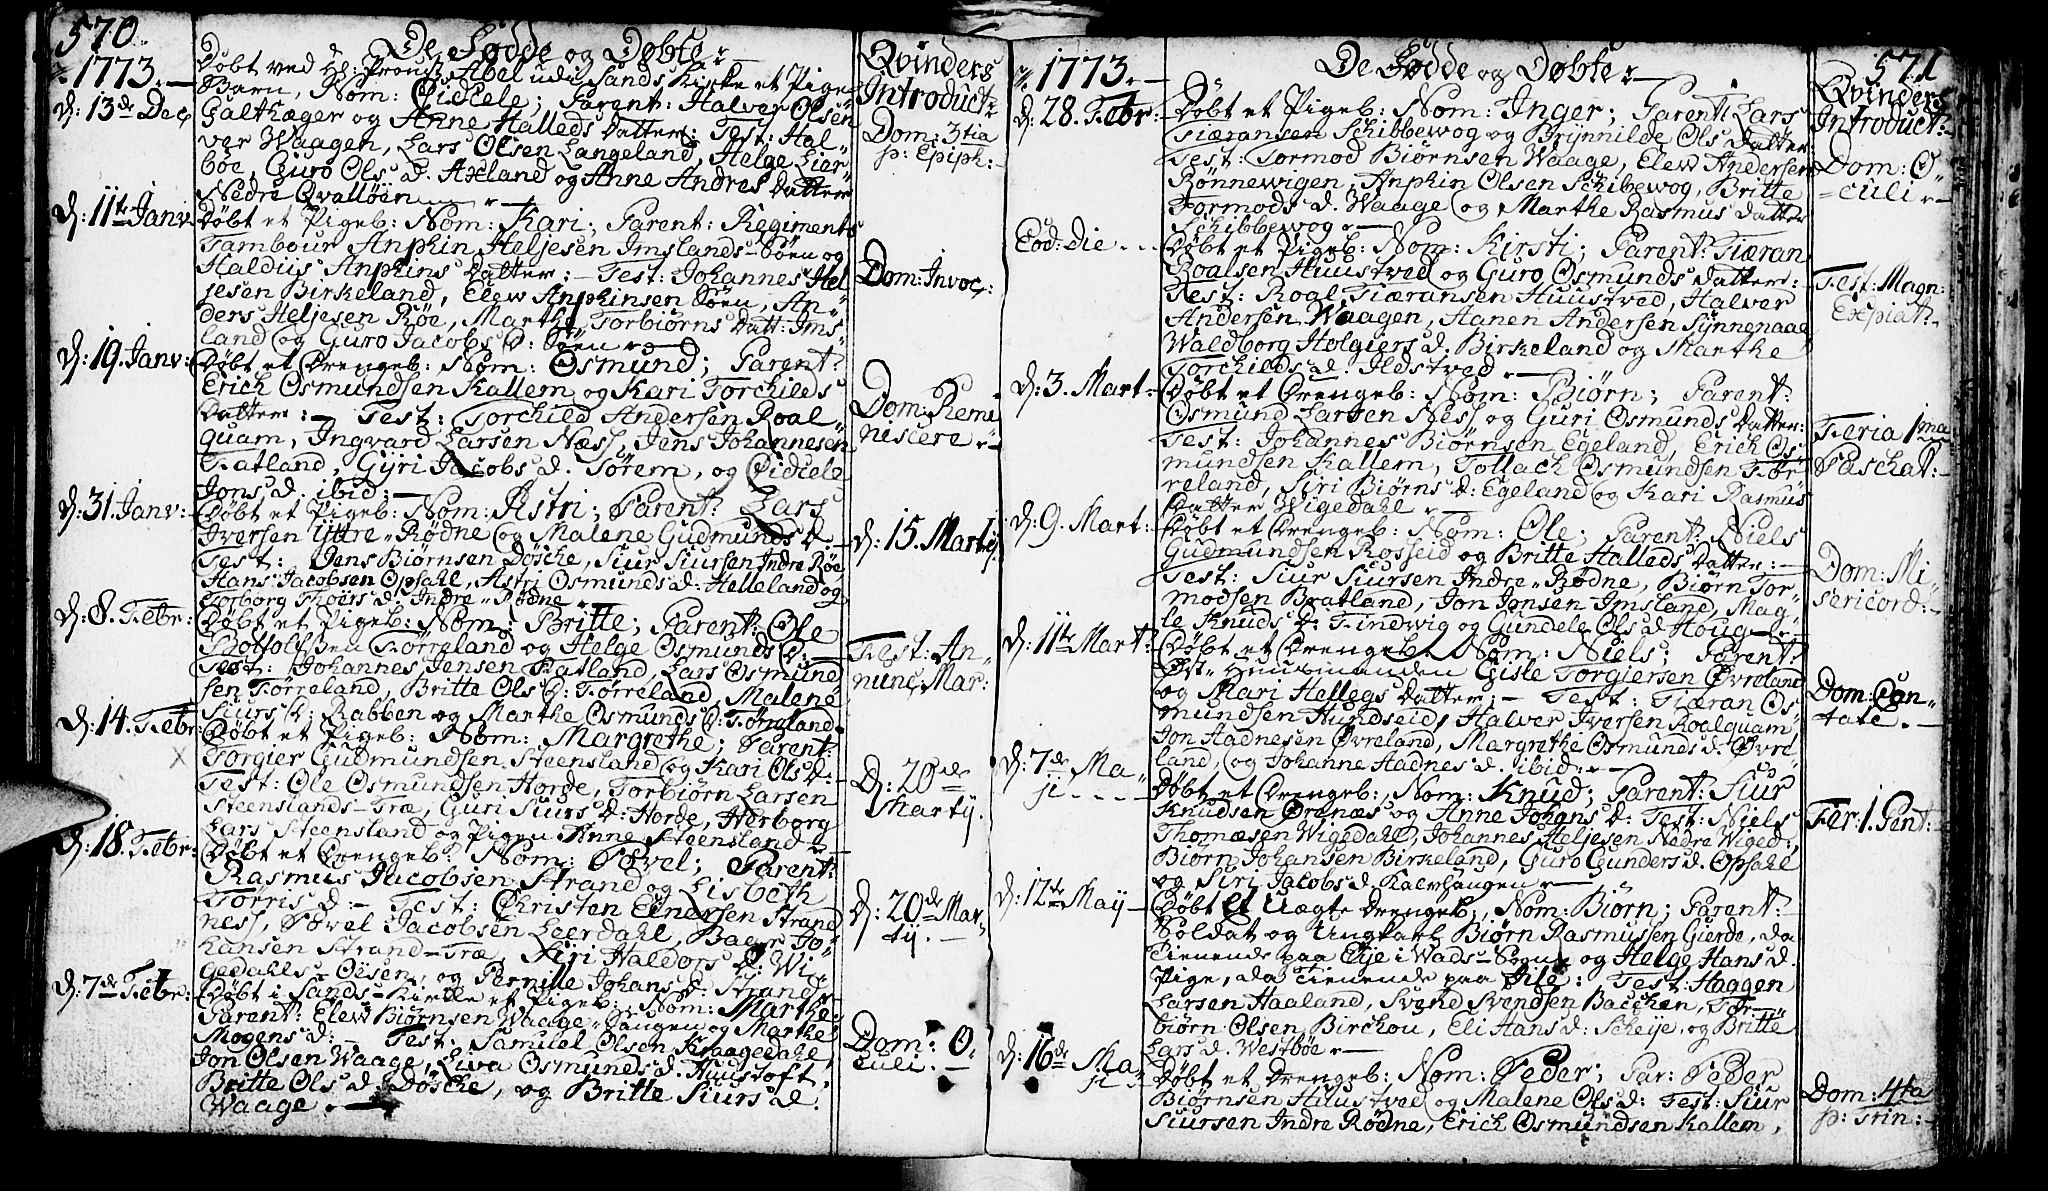 570.
De Fødde og Døbte
Qvinders
Introduct:
1773.
d: 13de Dec,
Døbt ved Hr: Proust Abel udi Sands Kirke et Pige
Barn, Nom: Cidcele; Parent: Halver Olsen
Galthæger og Anne Halleds Datter: Test: Hal-
ver Waagen, Lars Olsen Langeland, Helge Lier-
böe, Guro Ols d. Axland og Anne Andres Datter
Nedre Qvalløen
Dom: 3tia
p: Epiph:
d: 11te Janv.
Døbt et Pigeb: Nom: Kari; Parent: Regiments
Tambour Anphin Heljesen Imslands-Søen og
Haldiis Anphins Datter; Test: Johannes Hel
jesen Birkeland, Elew Anphinsen Søen, An-
ders Heljesen Røe, Marthe Torbiørns Datt: Ims-
land og Guro Jacobs D: Søen
Dom: Invoc:
d: 19. Janv:
Døbt et Drengeb: Nom: Osmund; Parent:
Erich Osmundsen Kallem og Kari Torchilds
Datter: Test: Torchild Andersen Roal-
quam, Ingvard Larsen Næss, Jens Johannesen
Fatland, Gyri Jacobs d. Sørem, og Cidcele
Jons d. ibid:
Dom: Remi
niscere
d: 31 Janv:
Døbt et Pigeb: Nom: Astri; Parent: Lars
Iversen Yttre Rødne og Malene Gudmunds D:
Test: Jens Biørnsen Døscke, Siur Siursen Indre Røe
Hans Jacobsen Opsahl, Astri Osmunds d. Helleland og
Torborg Thoers d. Indre Rødne
d: 15. Martij
d: 8. Febr:
Døbt et Pigeb: Nom: Britte; Parent: Ole
Botholfsen Førreland og Helge Osmunds D:
Test: Johannes Jensen Fatland, Lars Osmund
sen Førreland, Britte Ols D: Førreland Malene
Siurs D: Rabben og Marthe Osmunds D: Tøngland
Fest: An-
nunc: Mar:
d: 14. Febr:
Døbt et Pigeb: Nom: Margrethe; Parent:
Torgier Gudmundsen Steensland og Kari Ols D:
Test: Ole Osmundsen Horde, Torbiørn Larsen
Steenslands-Træ, Guri Siurs D: Horde, Herborg
Lars Steensland og Pigen Anne Steensland
D: 20de
Martij.
d: 18. Febr:
Døbt et Drengeb: Nom: Povel; Parent:
Rasmus Jacobsen Strand og Lisbeth
Tørris d: Test: Christen Einersen Strand
ness, Povel Jacobsen Leerdahl, Baer Jo-
hansen Strand-Træ, Siri Haldors D: Wi-
gedahls-Oisen, og Pernille Johans D: Strand
d: 20de Mar-
tij.
d: 7de Febr:
Døbt i Sands-Kirke et Pigeb: Nom: Marthe
Parent: Elew Biørnsen Waage Vangen og Marthe
Mogens d: Test: Samuel Olsen Kraagedahl,
Jon Olsen Waage, Liva Osmunds d. Huustoft,
Britte Ols d. Døscke, og Britte Siurs d.
Waage.
Dom: O-
culi.
571
De Fødde og Døbte
Qvinders
Introduct:
1773.
d: 28. Febr:
Døbt et Pigeb: Nom: Inger; Parent: Lars
Tiæransen Schibbewog og Brynnilde Ols Datter:
Test: Tormod Biørnsen Waage, Elew Andersen
Rønnewigen, Anphin Olsen Schibbewog, Britte
Tormods d. Waage og Marthe Rasmus Datter
Schibbewog
Dom: O-
culi
Eod: Die
Døbt et Pigeb: Nom: Kirsti; Parent: Tiæran
Roalsen Huustved og Guro Osmunds Datter:
Test: Roal Tiæransen Huustved, Halver
Andersen Waagen, Aanen Andersen Synnenaae
Waldborg Holgiers d. Birkeland og Marthe
Torchilds d. Ilestved
Fest: Magn:
Expiat:
d: 3. Mart
Døbt et Drengeb: Nom: Biørn; Parent:
Osmund Larsen Ness og Guri Osmunds Datter:
Test: Johannes Biørnsen Egeland, Erich Os-
mundsen Kallem, Tollach Osmundsen Før-
reland, Siri Biørns D: Egeland og Kari Rasmus
Datter Wigedahl
Feria 1ma
Paschat:
d: 9. Mart:
Døbt et Drengeb: Nom: Ole; Parent: Niels
Gudmundsen Rosseid og Britte Halleds Datter:
Test: Siur Siursen Indre Rødne, Biørn Tor-
modsen Bratland, Jon Jonsen Imsland, Mag-
le Knuds D: Findwig og Gundele Ols d. Houg
Dom: Mi-
sericord:
d: 11te Mart:
Døbt et Drengeb: Nom: Niels; Parent:
Øst-Huusmanden Gisle Torgiersen Øvreland
og Mari Hellegs Datter; Test: Tiæran Os-
mundsen Hundseid, Halver Iversen Roalquam,
Jon Hadnesen Øvreland, Margrethe Osmunds d. Øvre
land, og Johanne Hadnes d. ibid:
Dom: Can-
tate.
d: 7de Ma-
ji
Døbt et Drengeb: Nom: Knud; Parent: Siur
Knudsen Ørenæs og Anne Johans D: Test: Niels
Thomæsen Wigedahl, Johannes Heljesen Nedre Wiged:,
Biørn Johansen Birkeland, Guro Gunders d. Opsahl
og Siri Jacobs d. Kalvhaugen
Fer: 1. Pent:
d: 12te Maij
Døbt et Uægte Drengeb:, Nom: Biørn; Parent:
Soldat og Ungkarl Biørn Rasmussen Gierde, da
Tienende paa Eije i Wads-Sogn og Helge Hans d.
Pige, da Tienende paa Ile: Test: Haagen
Larsen Haaland, Svend Svendsen Bacchen, Tor-
biørn Olsen, Birchou, Eli Hans d: Scheije, og Britte
Lars d. Westbøe
d: 16de Ma-
ji
Døbt et Drengeb: Nom: Peder; Par: Peder
Biørnsen Huustved og Malene Ols D: Test: Siur
Siursen Indre Rødne, Erich Osmundsen Kallem,
Dom: 4ta
p: Trin: